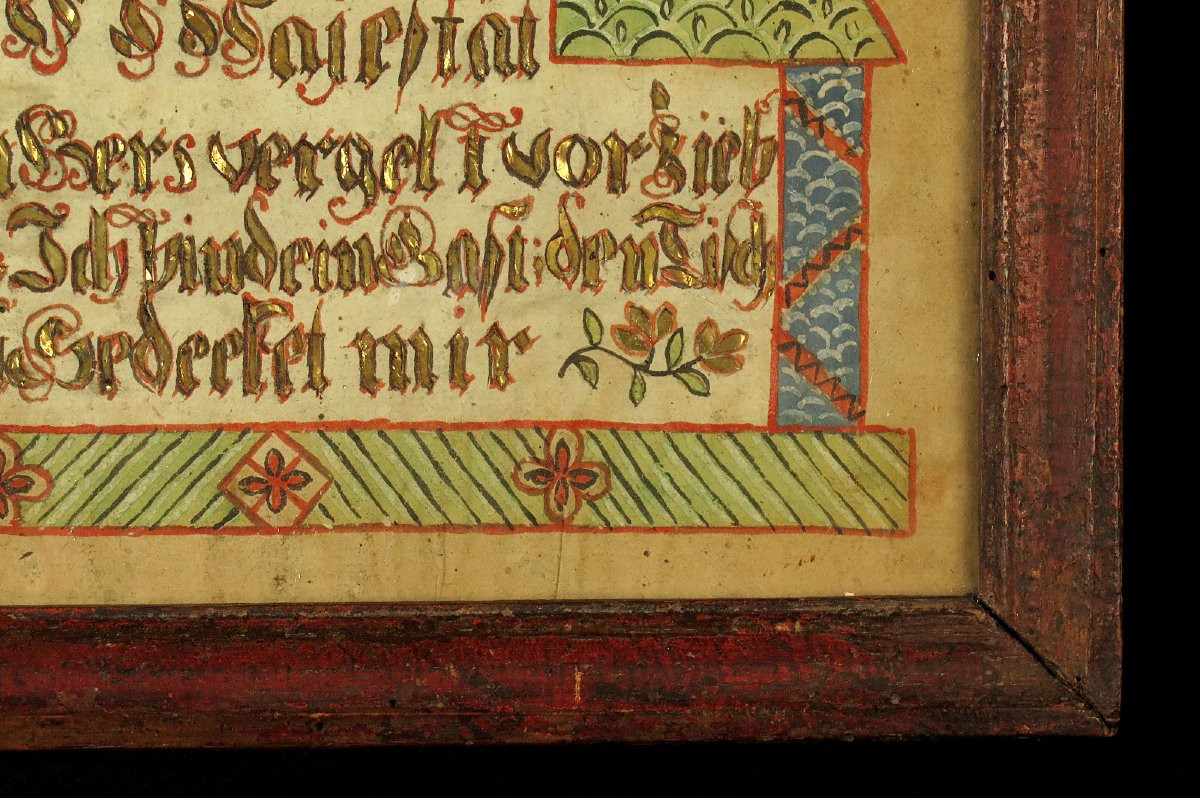 Majestat
Hers vergelt vor lieb
Ich bin dein Gast: den Tisch
Gedecket mir